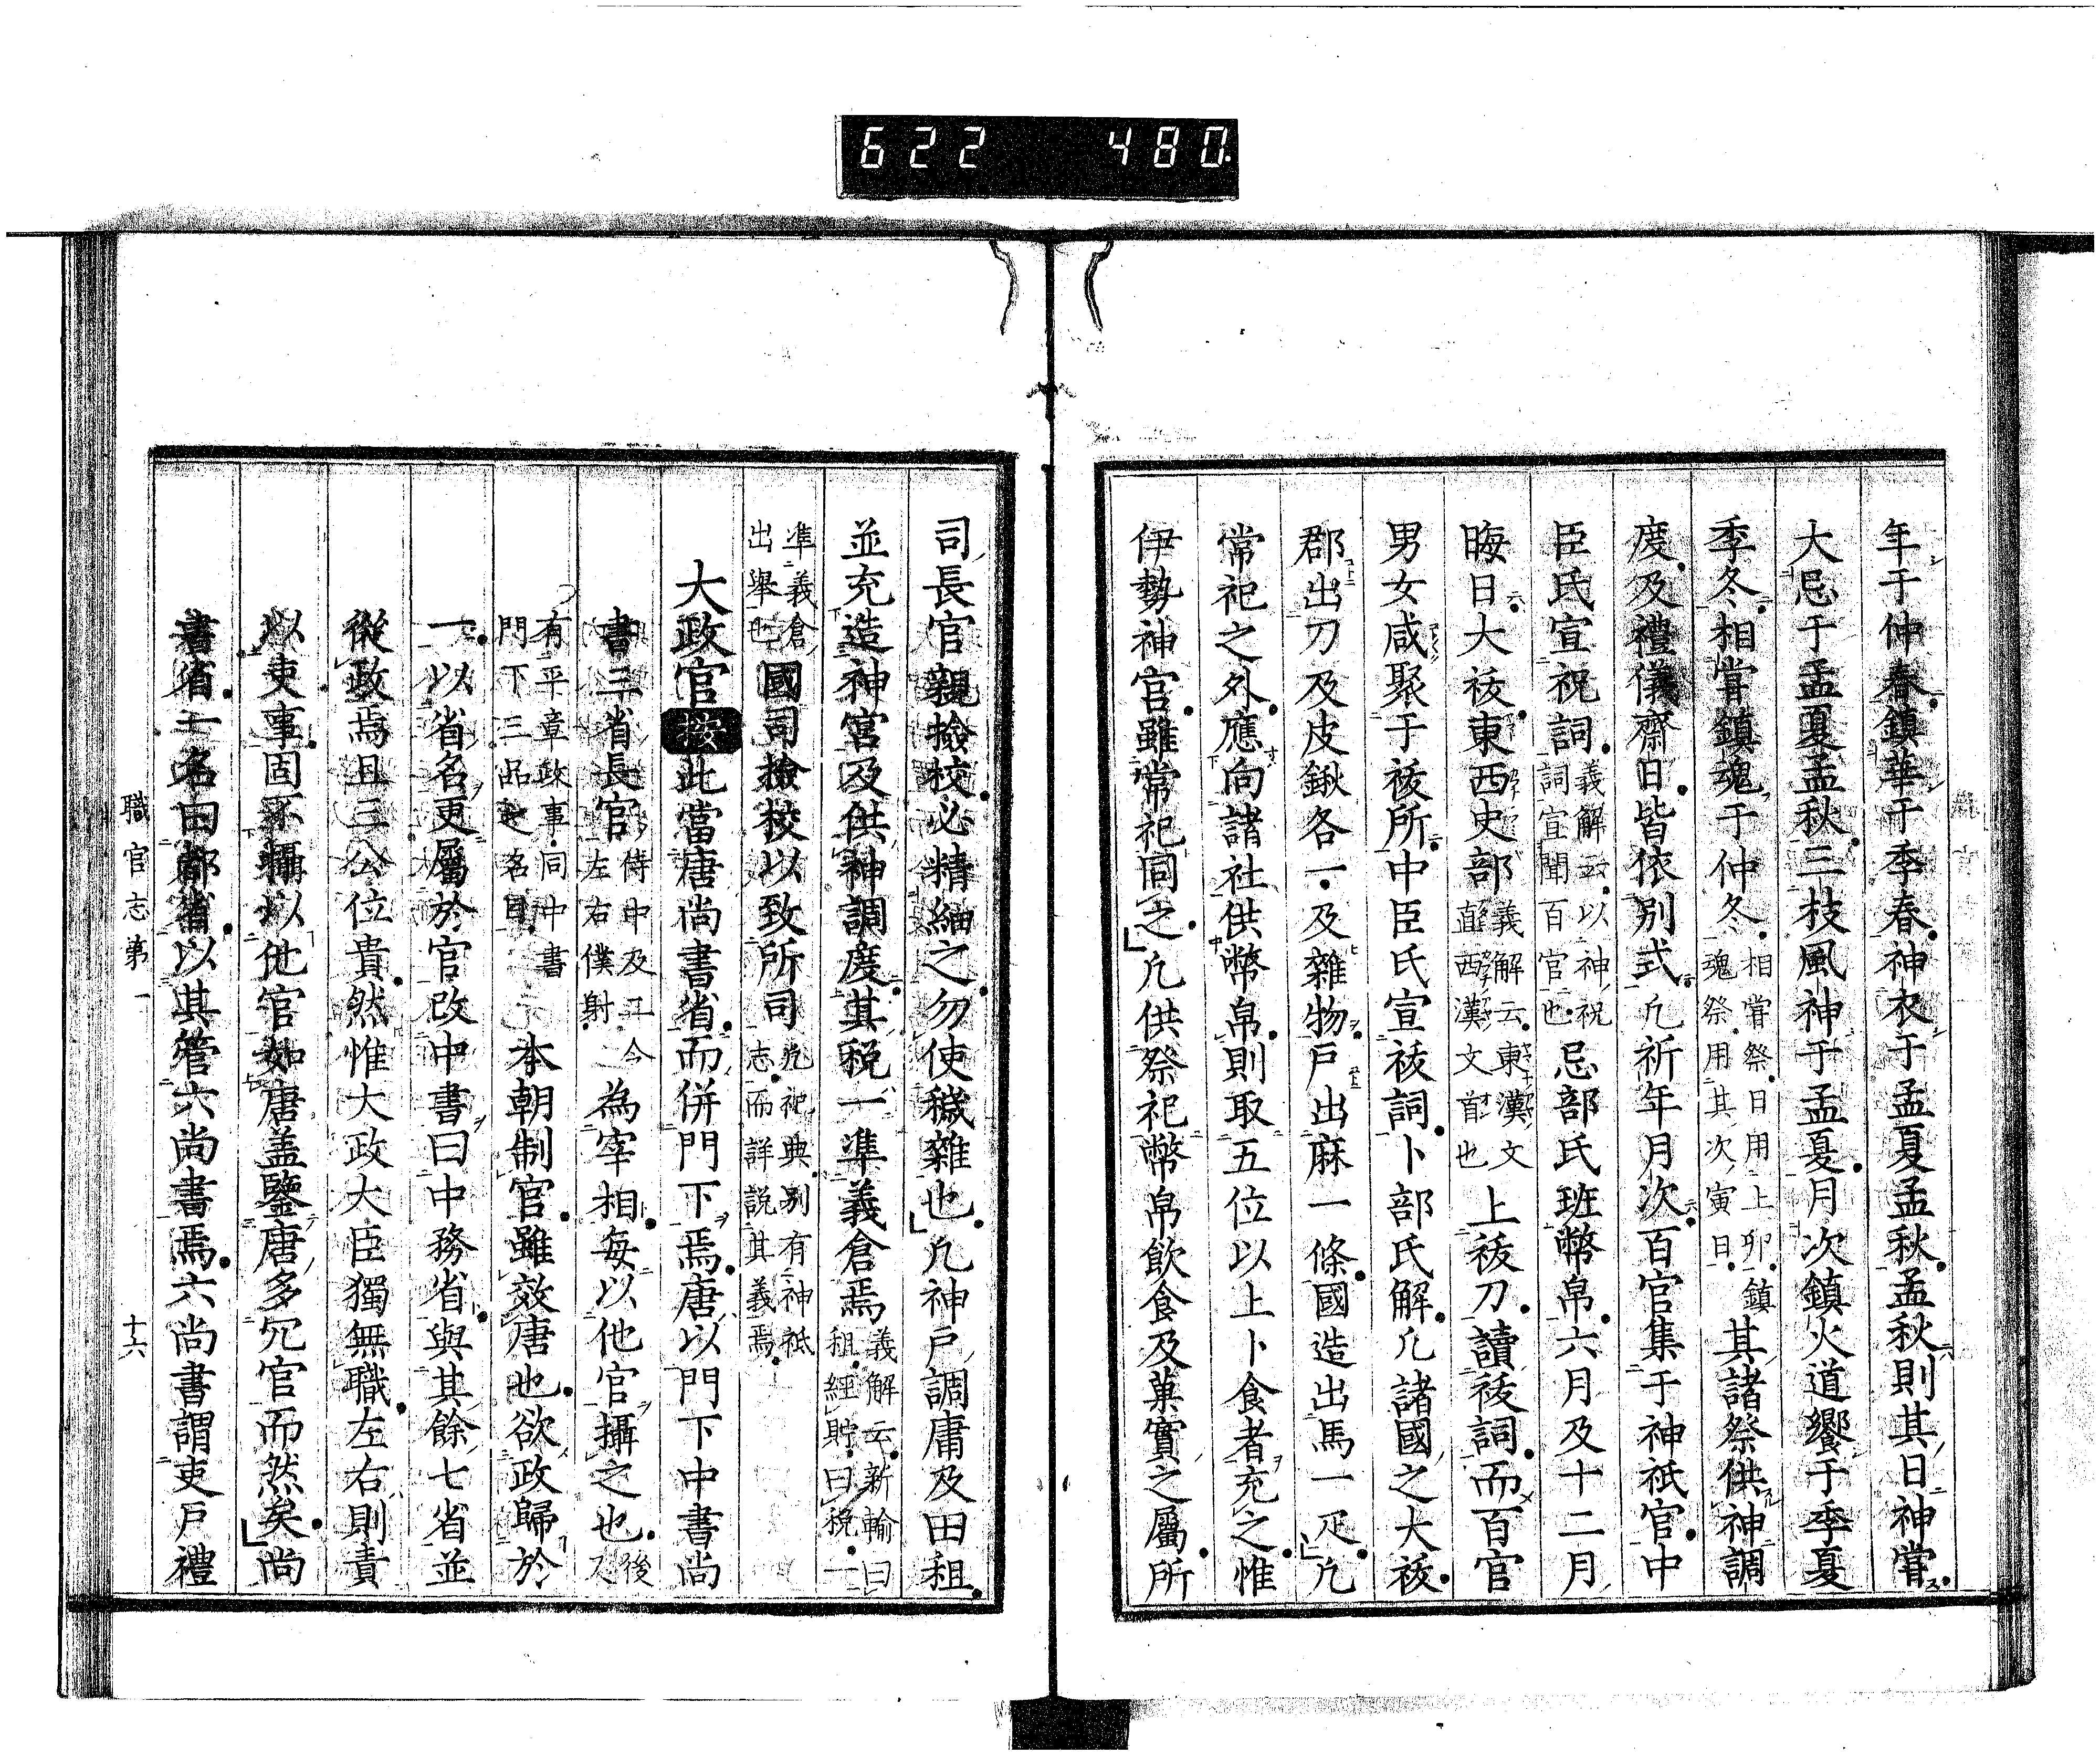 622 480
年于仲春鎮華于季春神衣于孟夏孟秋孟秋則其日神嘗
大忌于孟夏孟秋三枝風神于孟夏月次鎮火道饗于季夏
季冬相嘗鎮魂于仲冬相嘗祭日用上卯鎮魂祭用其次寅日其諸祭供神調
度及禮儀齋日皆依別式凡祈年月次百官集于神祇官中
臣氏宣祝詞義解云以神祝詞宣聞百官也忌部氏班幣帛六月及十二月
晦日大祓東西史部義解云東漢文直西漢文首也上祓刀讀祓詞而百官
男女咸聚于祓所中臣氏宣祓詞卜部氏解凡諸國之大祓
郡出刀及皮鍬各一及雜物戸出麻一條國造出馬一疋凡
常祀之外應向諸社供幣帛則取五位以上卜食者充之惟
伊勢神官雖常祀同之凡供祭祀幣帛飲食及菓實之屬所
司長官親撿校必精細之勿使穢雜也凡神戸調庸及田租
並充造神宮及供神調度其税一準義倉焉義解云新輸曰租經貯曰税一
準義倉出舉也國司撿校以致所司凡神典別有神祇志而詳説其義焉
大政官按此當唐尚書省而併門下焉唐以門下中書尚
書三省長官侍中及令左右僕射為宰相每以他官攝之也後又
有平章政事同中書門下三品之名目本朝制官雖效唐也欲政歸於
一以省名更屬於官改中書曰中務省與其餘七省並
從政焉且三公位貴然惟大政大臣獨無職左右則責
以吏事固不攝以他官如唐盖鑒唐多冗官而然矣尚
書省一名曰都省以其管六尚書焉六尚書謂吏戸禮
職官志第一
十六